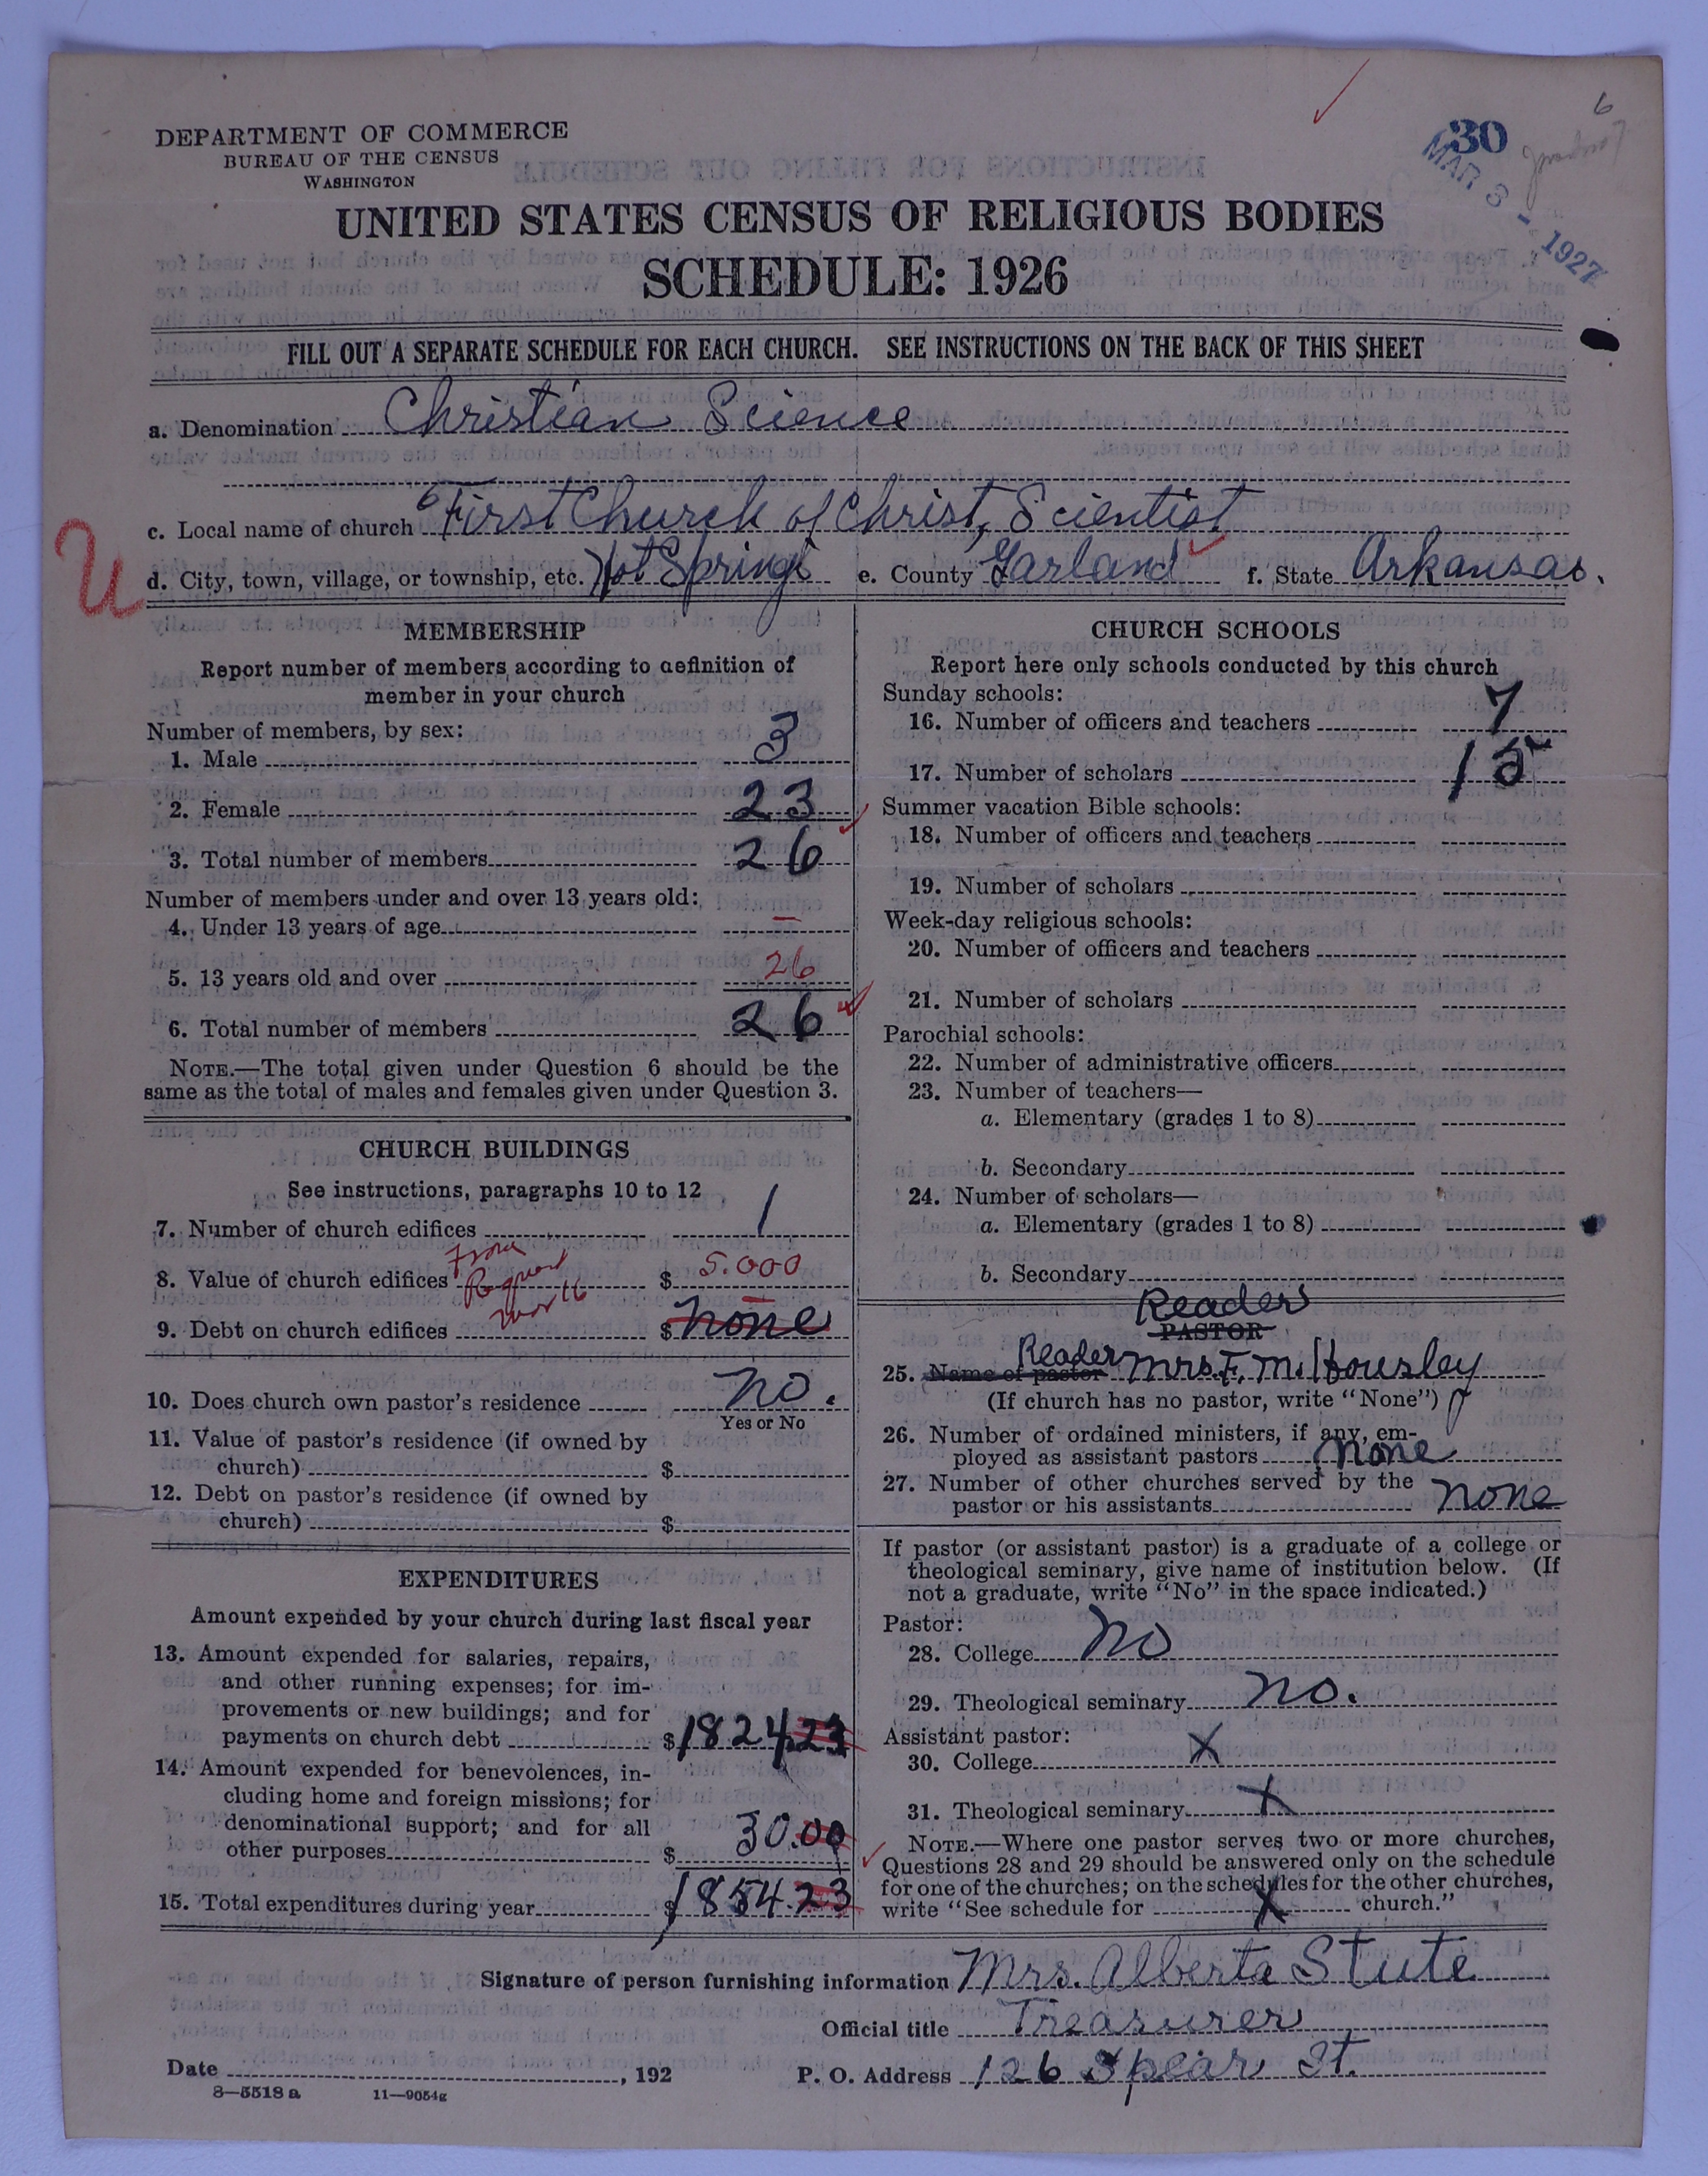 DEPARTMENT OF COMMERCE
BUREAU OF THE CENSUS
WASHINGTON
30
MAR 3 - 1927
6
UNITED STATES CENSUS OF RELIGIOUS BODIES
SCHEDULE: 1926
FILL OUT A SEPARATE SCHEDULE FOR EACH CHURCH. SEE INSTRUCTIONS ON THE BACK OF THIS SHEET
a. Denomination Christian Science
c. Local name of church First Church of Christ, Scientist
U
d. City, town, village, or township, etc. Hot Springs e. County Garland f. State Arkansas.
MEMBERSHIP
Report number of members according to definition of
member in your church
Number of members, by sex:
1. Male 3
2. Female 23
3. Total number of members 26
Number of members under and over 13 years old:
4. Under 13 years of age —
5. 13 years old and over 26
6. Total number of members 26
NOTE.—The total given under Question 6 should be the
same as the total of males and females given under Question 3.
CHURCH BUILDINGS
See instructions, paragraphs 10 to 12
7. Number of church edifices 1
From
8. Value of church edifices $ 5.000
9. Debt on church edifices $ none
10. Does church own pastor's residence no.
Yes or No
11. Value of pastor's residence (if owned by
church) $
12. Debt on pastor's residence (if owned by
church) $
EXPENDITURES
Amount expended by your church during last fiscal year
13. Amount expended for salaries, repairs,
and other running expenses; for im-
provements or new buildings; and for
payments on church debt $1824.23
14. Amount expended for benevolences, in-
cluding home and foreign missions; for
denominational support; and for all
other purposes $ 30.00
15. Total expenditures during year $1854.23
CHURCH SCHOOLS
Report here only schools conducted by this church
Sunday schools:
16. Number of officers and teachers 7
17. Number of scholars 15
Summer vacation Bible schools:
18. Number of officers and teachers
19. Number of scholars
Week-day religious schools:
20. Number of officers and teachers
21. Number of scholars
Parochial schools:
22. Number of administrative officers
23. Number of teachers—
a. Elementary (grades 1 to 8)
b. Secondary
24. Number of scholars—
a. Elementary (grades 1 to 8)
b. Secondary
Reader
PASTOR
Reader
25. Name of pastor Mrs. F. M. Housley
(If church has no pastor, write "None")
26. Number of ordained ministers, if any, em-
ployed as assistant pastors none
27. Number of other churches served by the
pastor or his assistants none
If pastor (or assistant pastor) is a graduate of a college or
theological seminary, give name of institution below. (If
not a graduate, write "No" in the space indicated.)
Pastor:
28. College No
29. Theological seminary no.
Assistant pastor:
30. College X
31. Theological seminary X
NOTE.—Where one pastor serves two or more churches,
Questions 28 and 29 should be answered only on the schedule
for one of the churches; on the schedules for the other churches,
write "See schedule for X church."
Signature of person furnishing information Mrs. Alberta Stute
Official title Treasurer
Date , 192 P. O. Address 126 Spear St.
8—5518 a 11—9054g